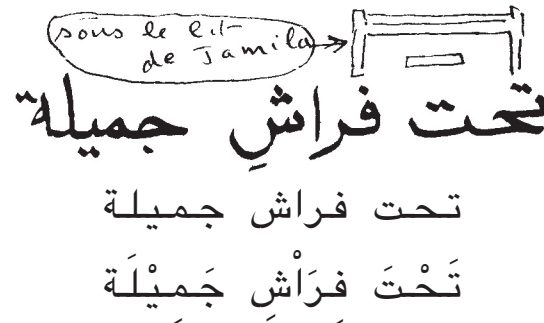 sous le lit
de Jamila
تحت فراشِ جميلة
تحت فراش جميلة
تَحْتَ فِرَاْشِ جَمِيْلَة